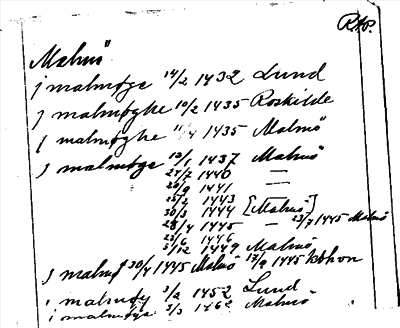 Rep.
Malmö
i malmøge 14/2 1432 Lund
i malmøghe 10/2 1435 Roskilde
i malmøghe 11/4 1435 Malmö
i malmøge 13/1 1437 Malmö
24/7 1440 —
26/9 1441 —
25/2 1443
30/3 1444 [Malmö]
28/4 1445 — 23/7 1445 Malmö
23/6 1446
5/12 1449 Malmö
i malmø 30/4 1445 Malmö 17/9 1445 Kbhvn
i malmøy 3/2 1452 Lund
i malmøge 3/3 1462 Malmö